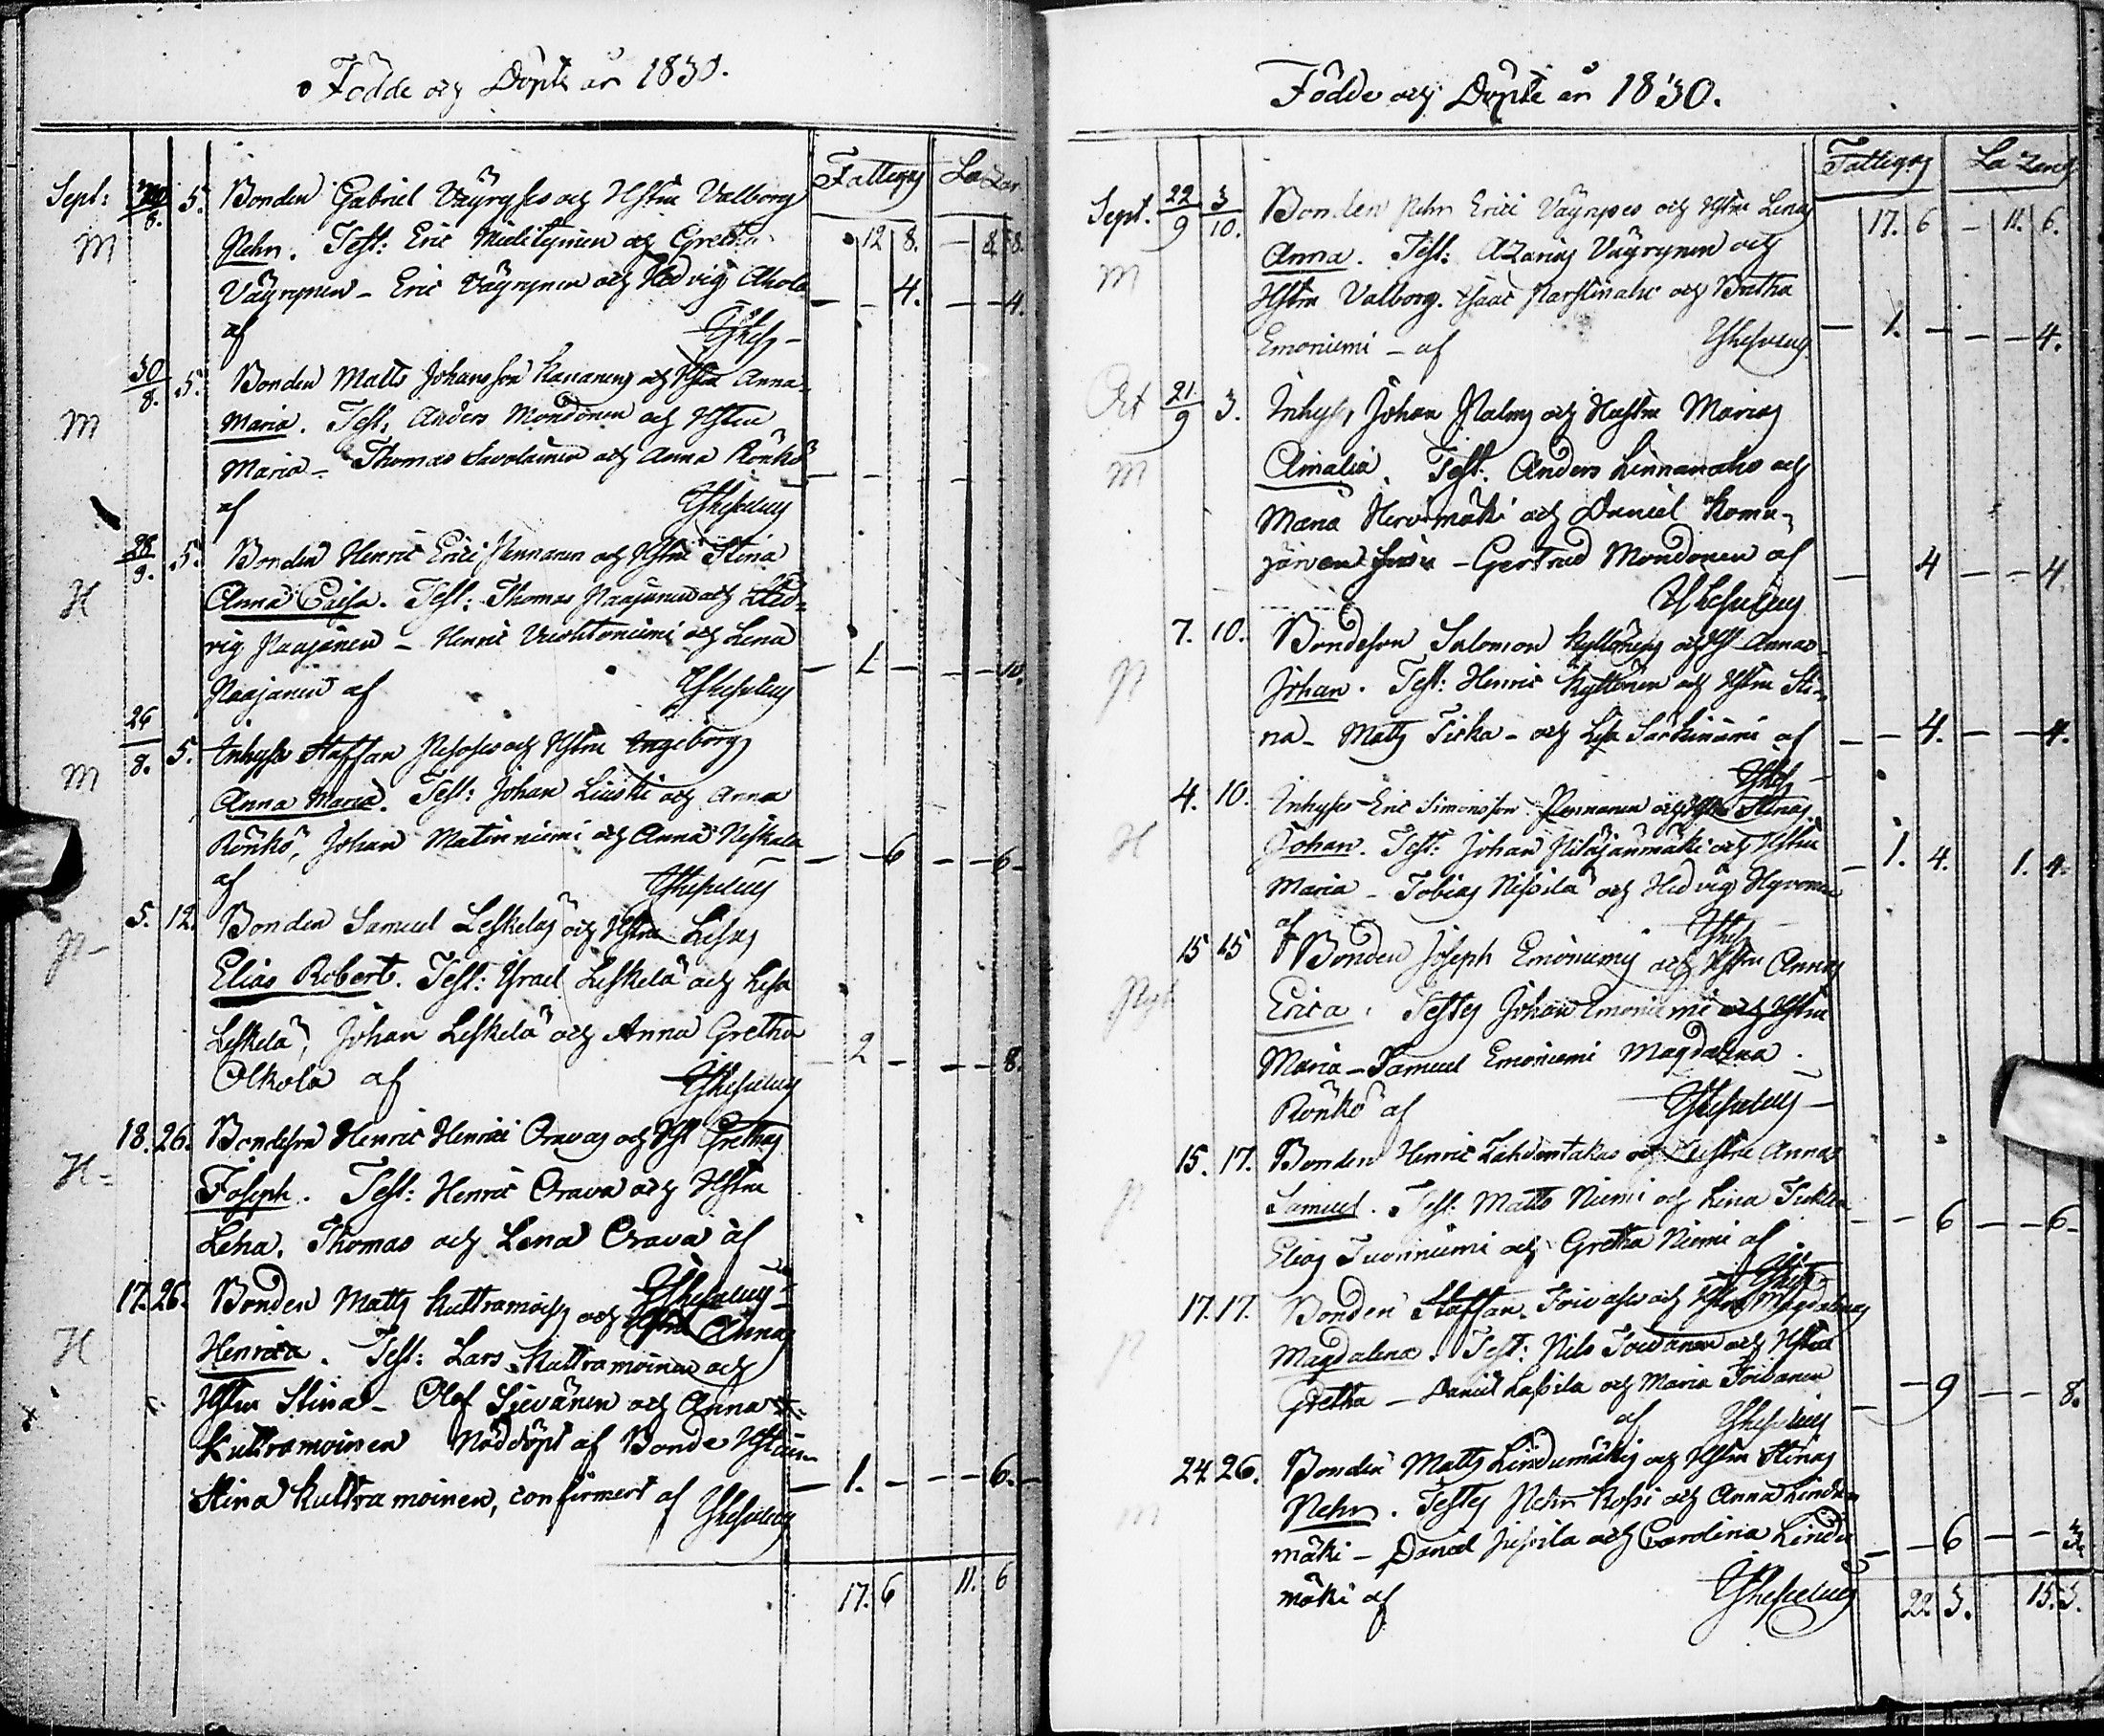 Födde och Döpte år 1830.
Fattigas Lazar.
Sept: 30/8. 5. Bonden Gabriel Väyryses och Hstru Valborg
M Pehr. Test: Eric Mielitynen och Gretha 12 8. – 8. 8.
Väyrynen – Eric Väyrynen och Hedvig Ahola – 4. – – 4.
af
30/8. 5. Bonden Matts Johansson Kananens och Hstru Anna
M Maria. Test: Anders Mondonen och Hstru
Maria – Thomas Savolainen och Anna Rönkö
af
28/9. 5. Bonden Henric Erici Pennanen och Hstru Stina
H Anna Caisa. Test: Thomas Naajanen och Hed=
vig Naajanen – Henric Vuohtoniemi och Lena
Naajanen af – 1 – – – 10.
26/8. 5. Inhyses Staffan och Hstru Ingeborg
M Anna Maria. Test: Johan Liusti och Anna
Rönkö, Johan Matinniemi och Anna Neskala
af – – 6 – – 6
5. 12. Bonden Samuel Leskeläs och Hstru Lisas
P – Elias Robert. Test: Israel Leskelä och Lisa
Leskelä, Johan Leskelä och Anna Gretha
Olkola af – 2 – – – 8.
18. 26. Bondeson Henric Henrici Oravas och Hst Grethas
H = Joseph. Test: Henric Orava och Hstru
Lena. Thomas och Lena Orava af
17. 26. Bonden Matts Kuttramois och Hstru Annas
H Henrica. Test: Lars Kuttramoinen och
Hstru Stina – Olof Sievänen och Anna
Kuttramoinen Nöddöpt af Bonde Hstrun
Stina Kuttramoinen, confirmert af – 1. – – – 6.
17. 6 11. 6
Födde och Döpte år 1830.
Fattigas Lazar.
Sept. 22/9 3/10. Bonden Pehr Erici Väyryses och Hstru Lenas 17. 6 – 11. 6.
M Anna. Test: Azarias Väyrynen och
Hstru Valborg. Isaac och Britha
Emoniemi – af – 1. – – – 4.
Oct 21/9 3. Inhys. Johan Palms och Hustru Marias
M Amalia. Test: Anders Linnanaho och
Maria Hervimäki och Daniel Komu-
järven – Gertrud Mondonen af – 4 – – 4
7. 10. Bondeson Salomon Kyllönens och Hst Annas
P Johan. Test: Henric Kyttönen och Hstru Sti-
na – Matts Tiska – och Lisa Särkiniemi af – – 4. – – 4.
4. 10. Inhyses Eric Simonsson Pennanen och Hstru Stinas
H Johan. Test: Johan och Hstru – 1. 4. 1. 4.
Maria – Tobias Nissilä och Hedvig Hyvönen
af
15 15 Bonden Joseph Emoniemis och Hstru Annas
Erica. Testes Johan Emoniemi och Hstru
Maria – Samuel Emoniemi Magdalena
Rönkö af
15. 17. Bonden Henric Lahdentakas och Hustru Annas
P Samuel. Test: Matts Niemi och Lina
Elias och Gretha Niemi af – – 6 – – 6
17. 17. Bonden Staffan Toivases och Hstru Magdalenas
P Magdalena. Test: Nils Toivanen och Hstru
Gretha – Daniel Lassila och Maria Toivanen
af – 9 – – 8.
24 26. Bonden Matts Lindumäkis och Hstru Stinas
M Pehr. Testes Pehr Kossi och Anna Lindu
mäki – Daniel och Carolina Lindu – – 6 – – 3
mäki af 22. 3. 15. 3.